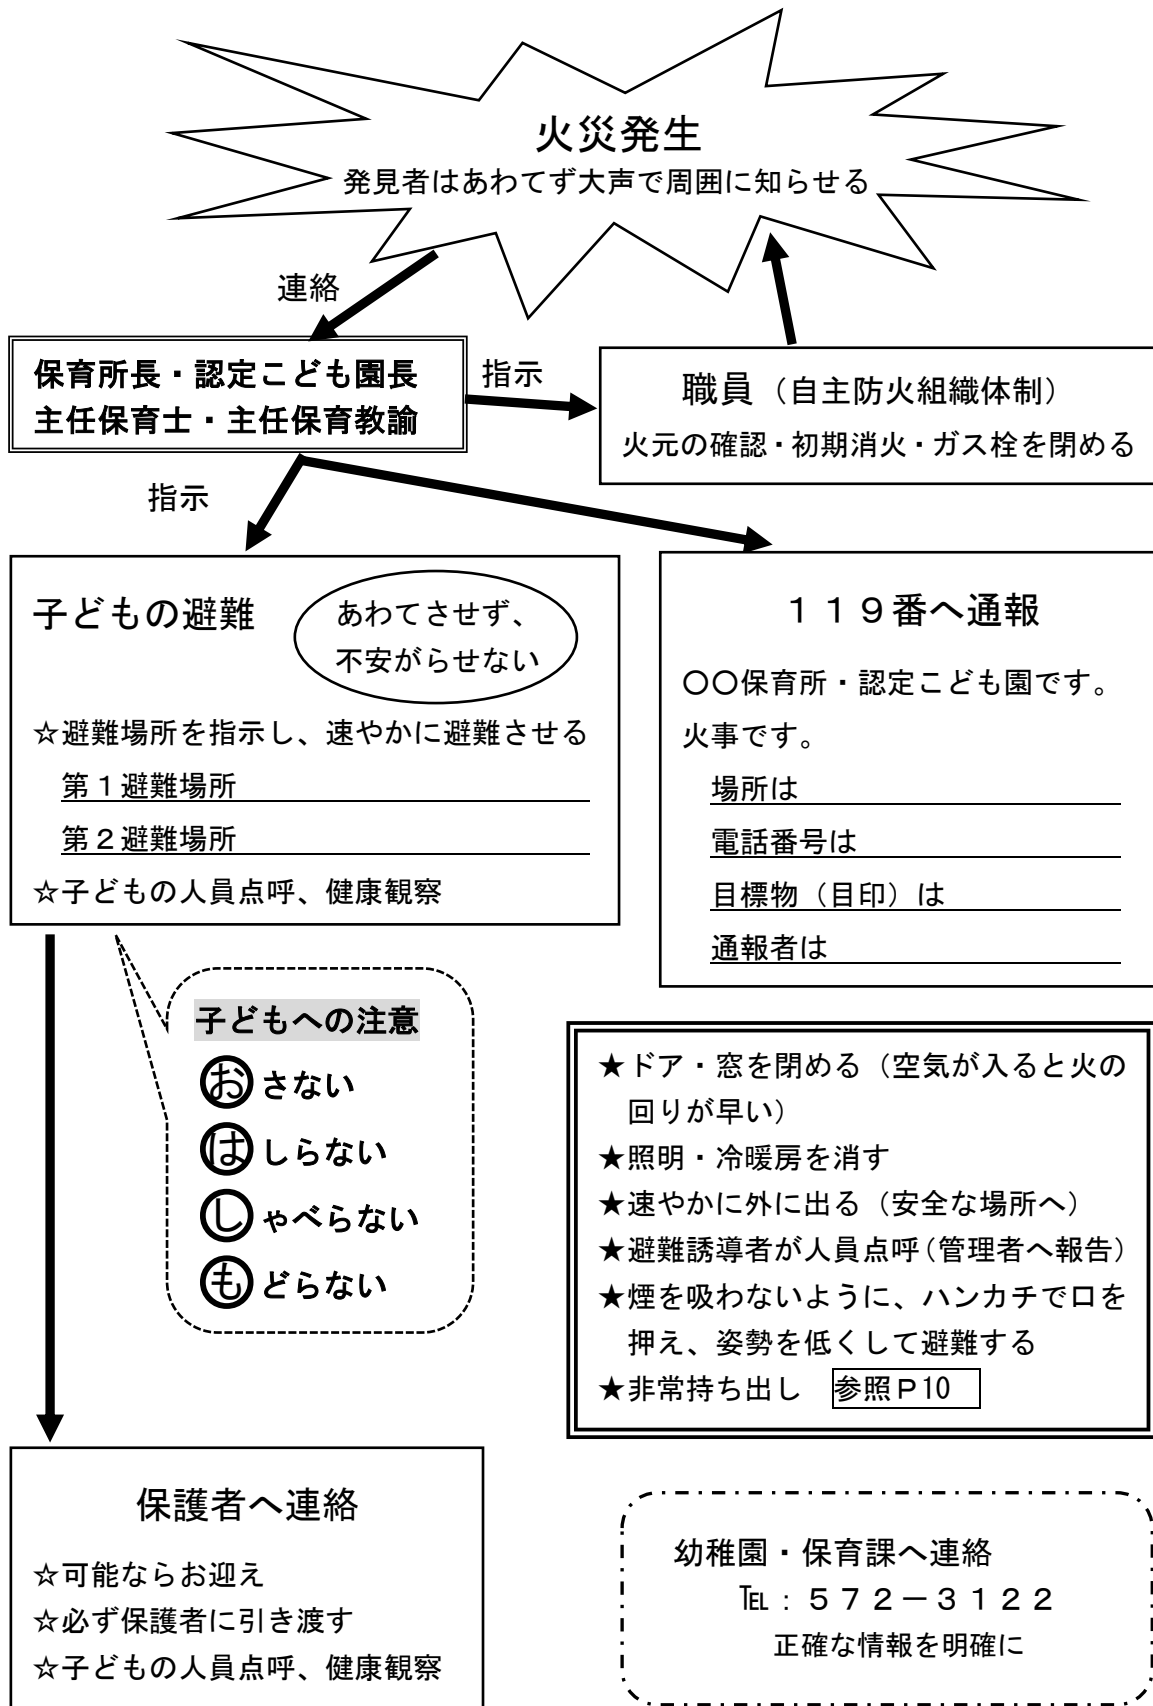 火災発生
発見者はあわてず大声で周囲に知らせる
連絡
保育所長・認定こども園長
主任保育士・主任保育教諭
指示
職員（自主防火組織体制）
火元の確認・初期消火・ガス栓を閉める
指示
子どもの避難
あわてさせず、
不安がらせない
☆避難場所を指示し、速やかに避難させる
第１避難場所
第２避難場所
☆子どもの人員点呼、健康観察
１１９番へ通報
〇〇保育所・認定こども園です。
火事です。
場所は
電話番号は
目標物（目印）は
通報者は
子どもへの注意
おさない
はしらない
しゃべらない
もどらない
★ドア・窓を閉める（空気が入ると火の
回りが早い）
★照明・冷暖房を消す
★速やかに外に出る（安全な場所へ）
★避難誘導者が人員点呼（管理者へ報告）
★煙を吸わないように、ハンカチで口を
押え、姿勢を低くして避難する
★非常持ち出し　参照Ｐ10
保護者へ連絡
☆可能ならお迎え
☆必ず保護者に引き渡す
☆子どもの人員点呼、健康観察
幼稚園・保育課へ連絡
℡：５７２－３１２２
正確な情報を明確に